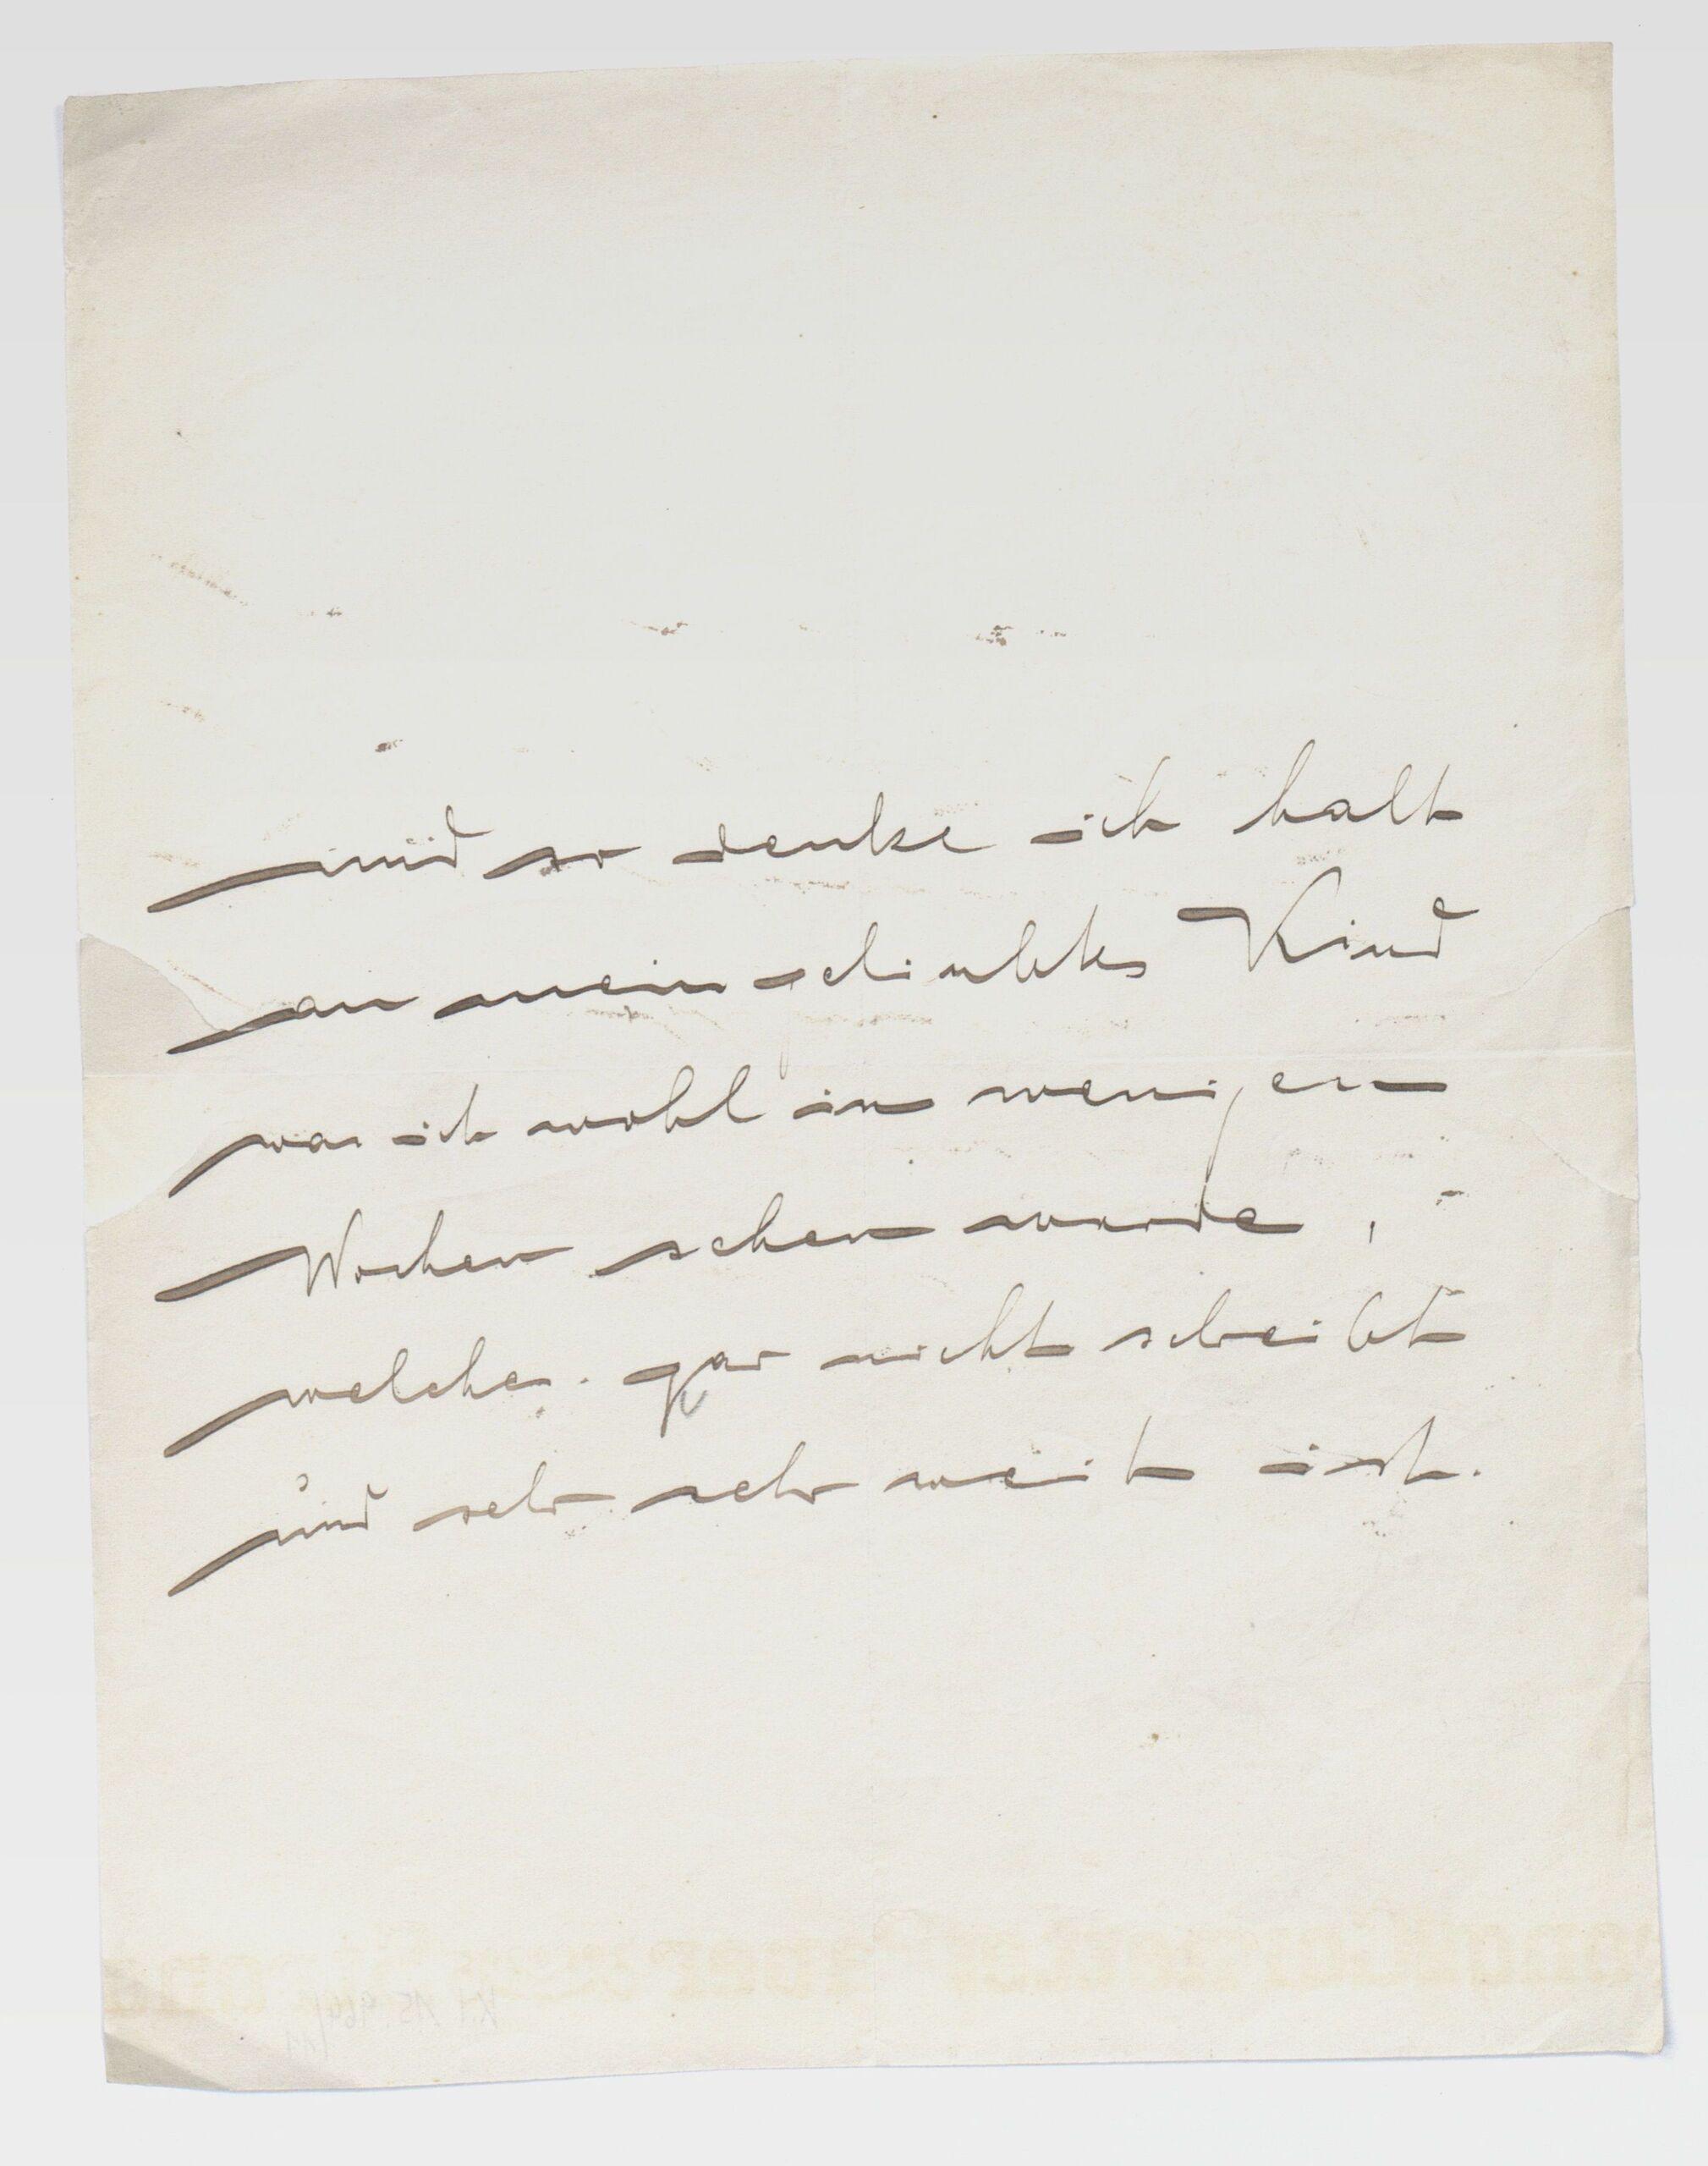 und so denke ich halt
an mein
Kind
was ich wohl in wenigen
Wochen sehen werde,
welches gar nicht schreibt
und sehr sehr weit ist.